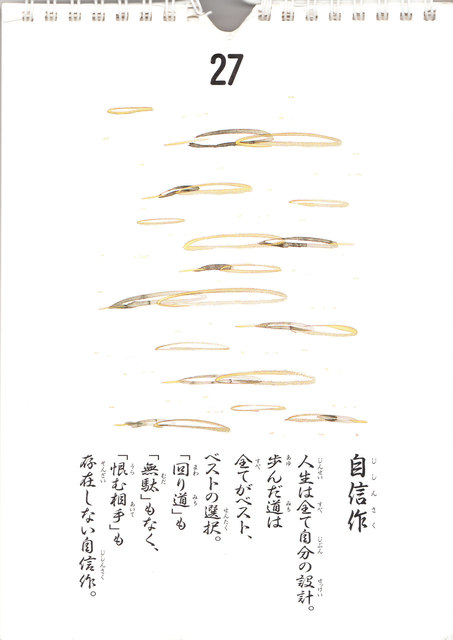 27
自信作
人生は全て自分の設計。
歩んだ道は
全てがベスト、
ベストの選択。
「回り道」も
「無駄」もなく、
「恨む相手」も
存在しない自信作。